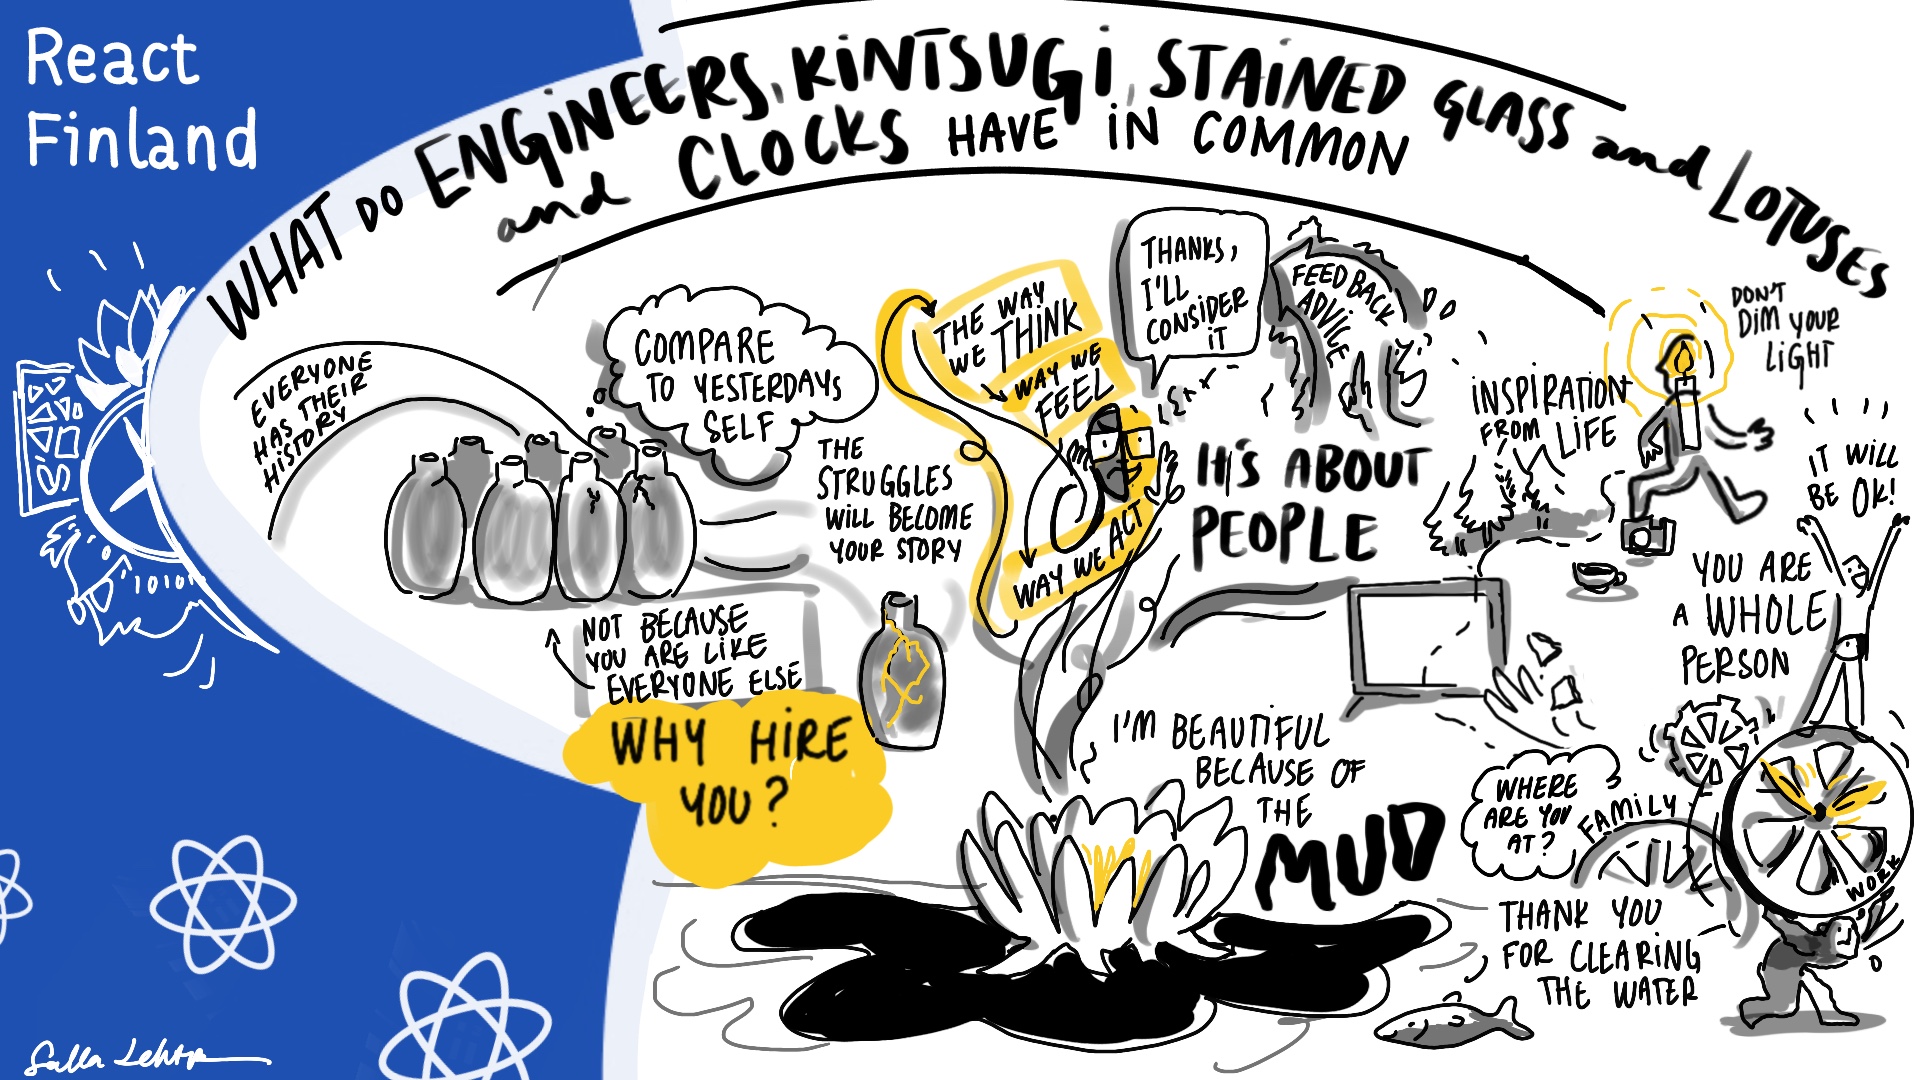 React
Finland
WHAT DO ENGINEERS, KINTSUGI, STAINED GLASS and LOTUSES
and CLOCKS HAVE IN COMMON
EVERYONE
HAS THEIR
HISTORY
COMPARE
TO YESTERDAYS
SELF
THE
STRUGGLES
WILL BECOME
YOUR STORY
NOT BECAUSE
YOU ARE LIKE
EVERYONE ELSE
WHY HIRE
YOU?
THE WAY
WE THINK
WAY WE
FEEL
WAY WE ACT
THANKS,
I'LL
CONSIDER
IT
FEEDBACK
ADVICE
IT'S ABOUT
PEOPLE
INSPIRATION
FROM LIFE
DON'T
DIM YOUR
LIGHT
IT WILL
BE OK!
YOU ARE
A WHOLE
PERSON
I'M BEAUTIFUL
BECAUSE OF
THE
MUD
WHERE
ARE YOU
AT?
FAMILY
WORK
THANK YOU
FOR CLEARING
THE WATER
10101